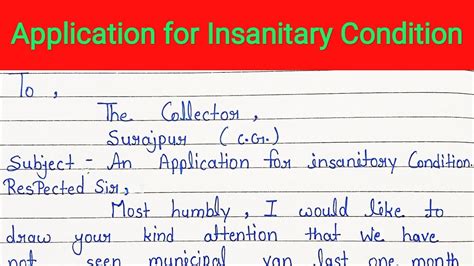 Application for Insanitary Condition
To ,
The Collector ,
Surajpur ( C.Gr.)
Subject - An Application for insanitory Condition.
ResPected Sir,
Most humbly , I would like to
draw your kind attention that we have
not seen municipal van last one month